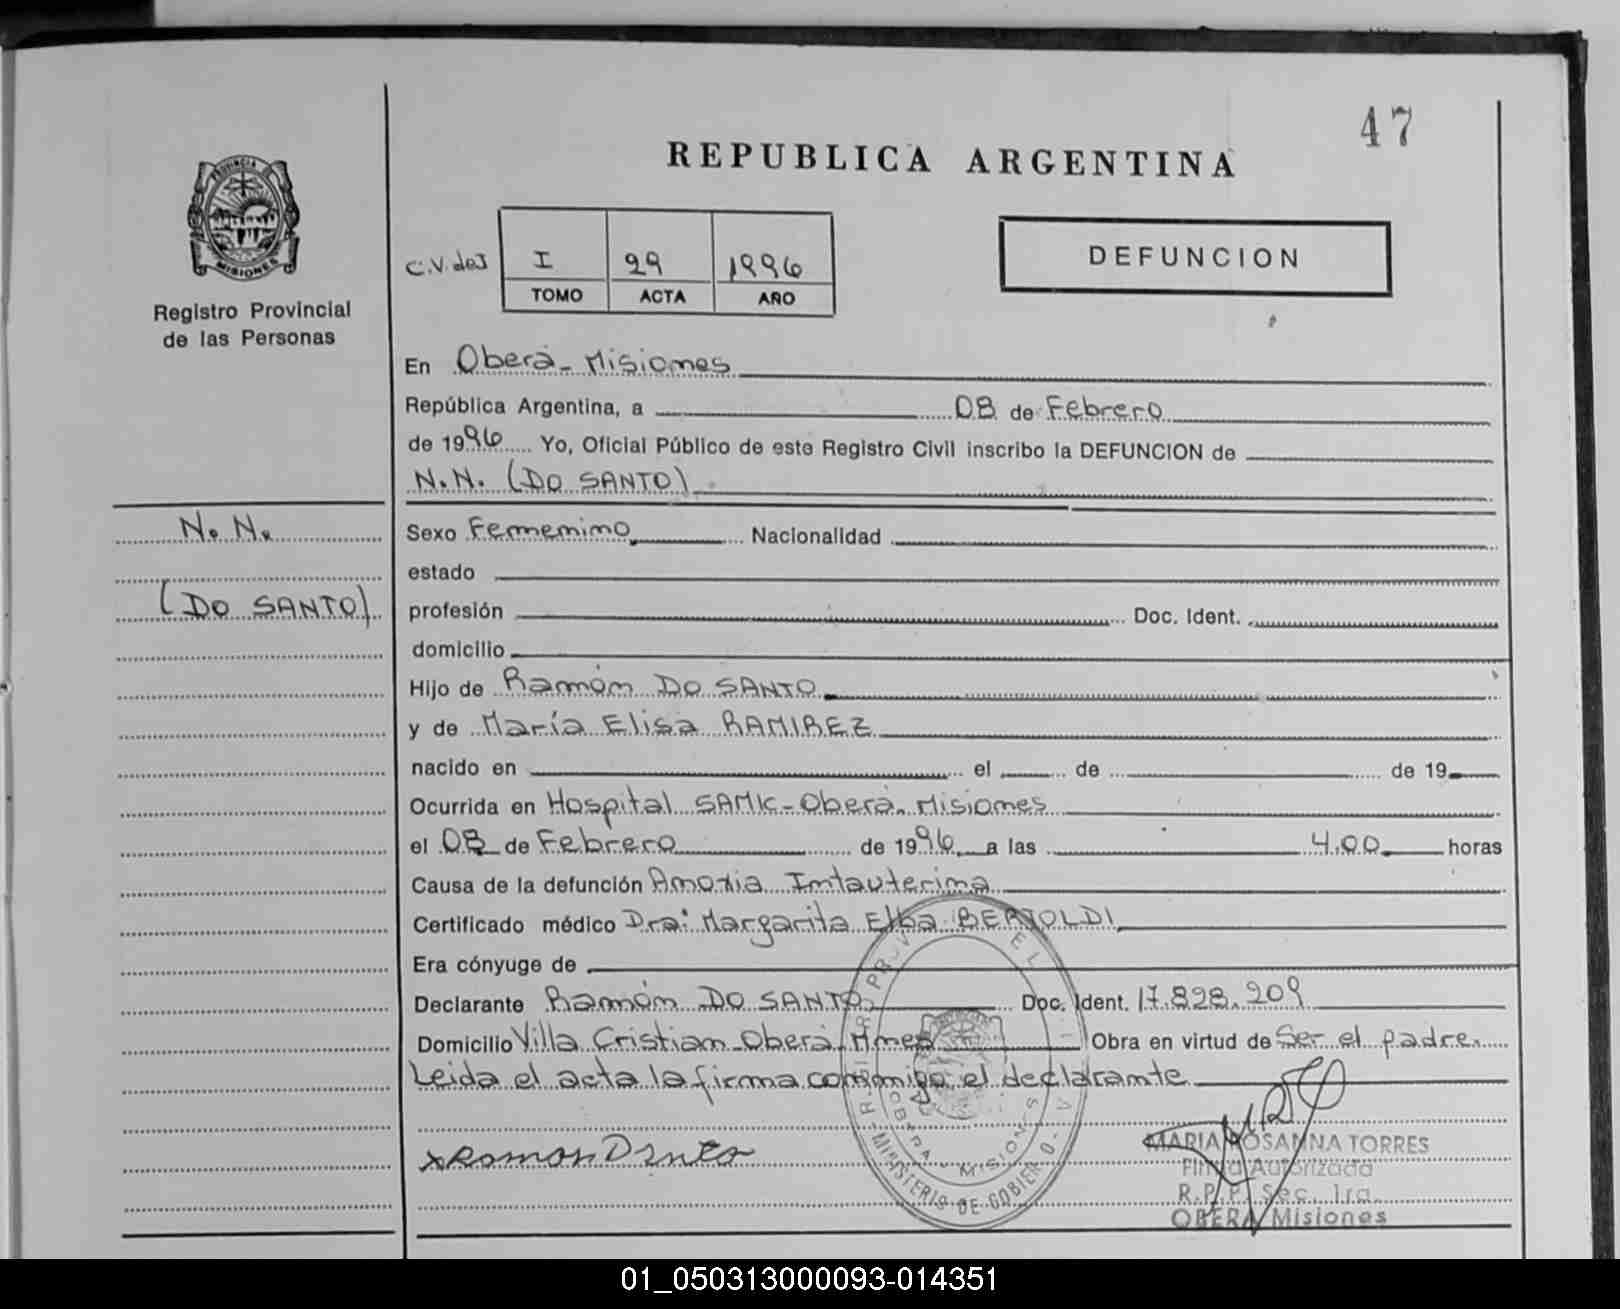 47
REPUBLICA ARGENTINA
PROVINCIA
MISIONES
Registro Provincial
de las Personas
C.V. deJ
I 29 1996
TOMO ACTA AÑO
DEFUNCION
En Oberá - Misiones
República Argentina, a 08 de Febrero
de 1996 Yo, Oficial Público de este Registro Civil inscribo la DEFUNCION de
N.N. (DO SANTO)
N. N.
(DO SANTO)
Sexo Femenino Nacionalidad
estado
profesión Doc. Ident.
domicilio
Hijo de Ramón DO SANTO
y de María Elisa RAMIREZ
nacido en el de de 19
Ocurrida en Hospital SAMIC - Oberá, Misiones
el 08 de Febrero de 1996 a las 4.00 horas
Causa de la defunción Anoxia Intauterina
Certificado médico Dra: Margarita Elba BERTOLDI
Era cónyuge de
Declarante Ramón DO SANTO Doc. Ident. 17.828.209
Domicilio Villa Cristian - Oberá, Mnes Obra en virtud de Ser el padre.
Leida el acta la firma conmigo el declarante
x Ramon Dsnto
MINISTERIO DE GOBIERNO
OBERA - MISIONES
MARIA ROSANNA TORRES
Firma Autorizada
R.P.P. Sec. 1ra.
OBERA Misiones
01_050313000093-014351